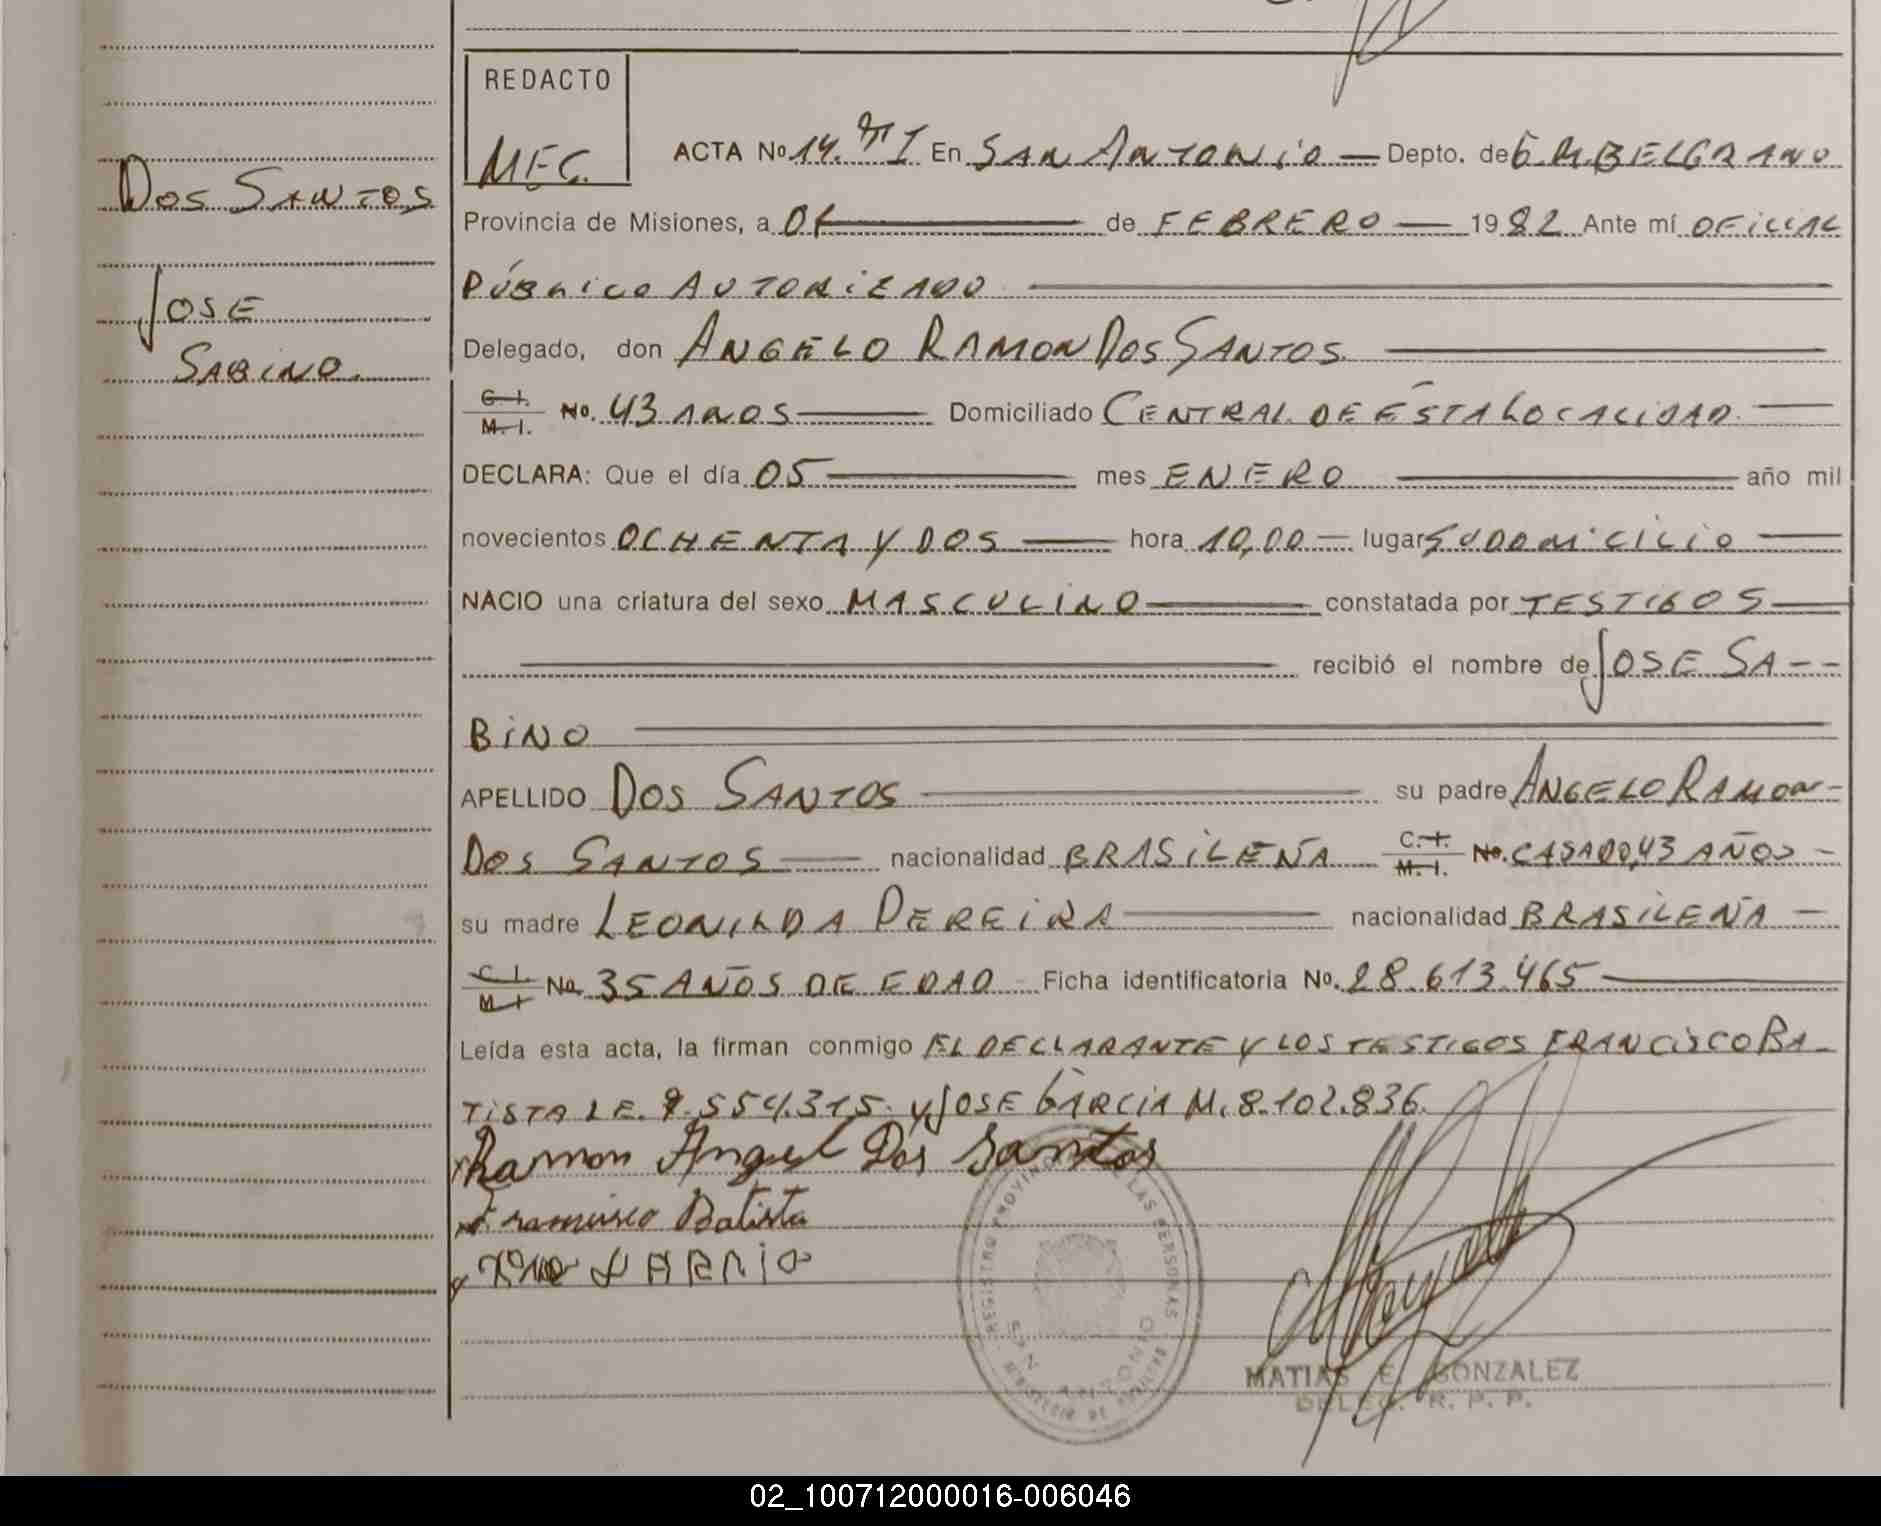 REDACTO
MEG.
ACTA No 14. TI En SAN ANTONIO Depto. de G. M. BELGRANO
DOS SANTOS
Provincia de Misiones, a 01 de FEBRERO 1982 Ante mí OFICIAL
JOSE
PÚBLICO AUTORIZADO
SABINO.
Delegado, don ANGELO RAMON DOS SANTOS
C. I. M. I. No. 43 AÑOS Domiciliado CENTRAL DE ESTA LOCALIDAD.
DECLARA: Que el día 05 mes ENERO año mil
novecientos OCHENTA Y DOS hora 10,00 lugar SU DOMICILIO
NACIO una criatura del sexo MASCULINO constatada por TESTIGOS
recibió el nombre de JOSE SA--
BINO
APELLIDO DOS SANTOS su padre ANGELO RAMON-
DOS SANTOS nacionalidad BRASILEÑA C. I. M. I. No. CASADO, 43 AÑOS
su madre LEONILDA PEREIRA nacionalidad BRASILEÑA
C. I. M. I. No. 35 AÑOS DE EDAD Ficha identificatoria No. 28.613.465
Leída esta acta, la firman conmigo EL DECLARANTE Y LOS TESTIGOS FRANCISCO BA-
TISTA L E. 7.554.315. y JOSE GARCIA M. 8.102.836.
Ramon Angel Dos Santos
Francisco Batista
REGISTRO PROVINCIAL DE LAS PERSONAS
SAN ANTONIO
MATIAS E. GONZALEZ
DELEG. R. P. P.
02_100712000016-006046